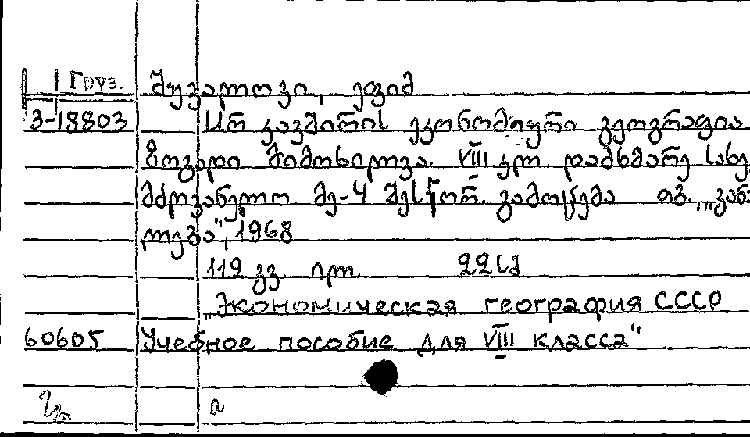 Груз. შუვალოვი, ეფიმ
3-18803 სსრ კავშირის ეკონომიური გეოგრაფია
ზოგადი მიმოხილვა. VIII კლ. დამხმარე სახე
მძღვანელო მე-4 შესწორ. გამოცემა თბ., „განა
ლება", 1968
112 გვ.
„Экономическая география СССР
60605 Учебное пособие для VIII класса"